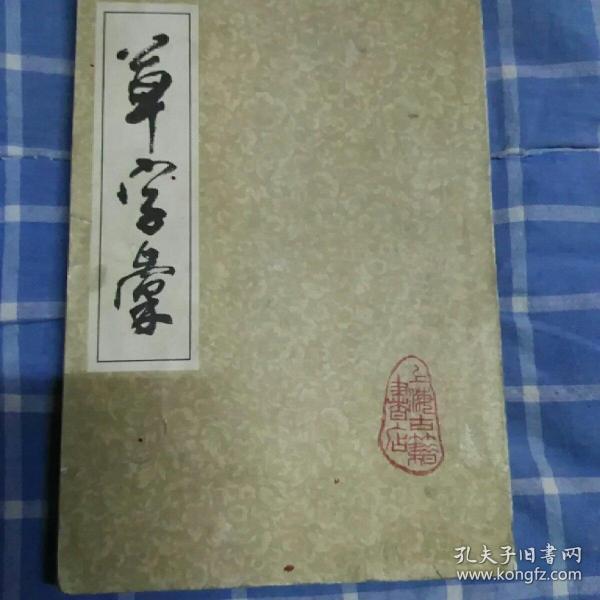 草字彙
上海古籍
書店
孔夫子旧書网
www.kongfz.com